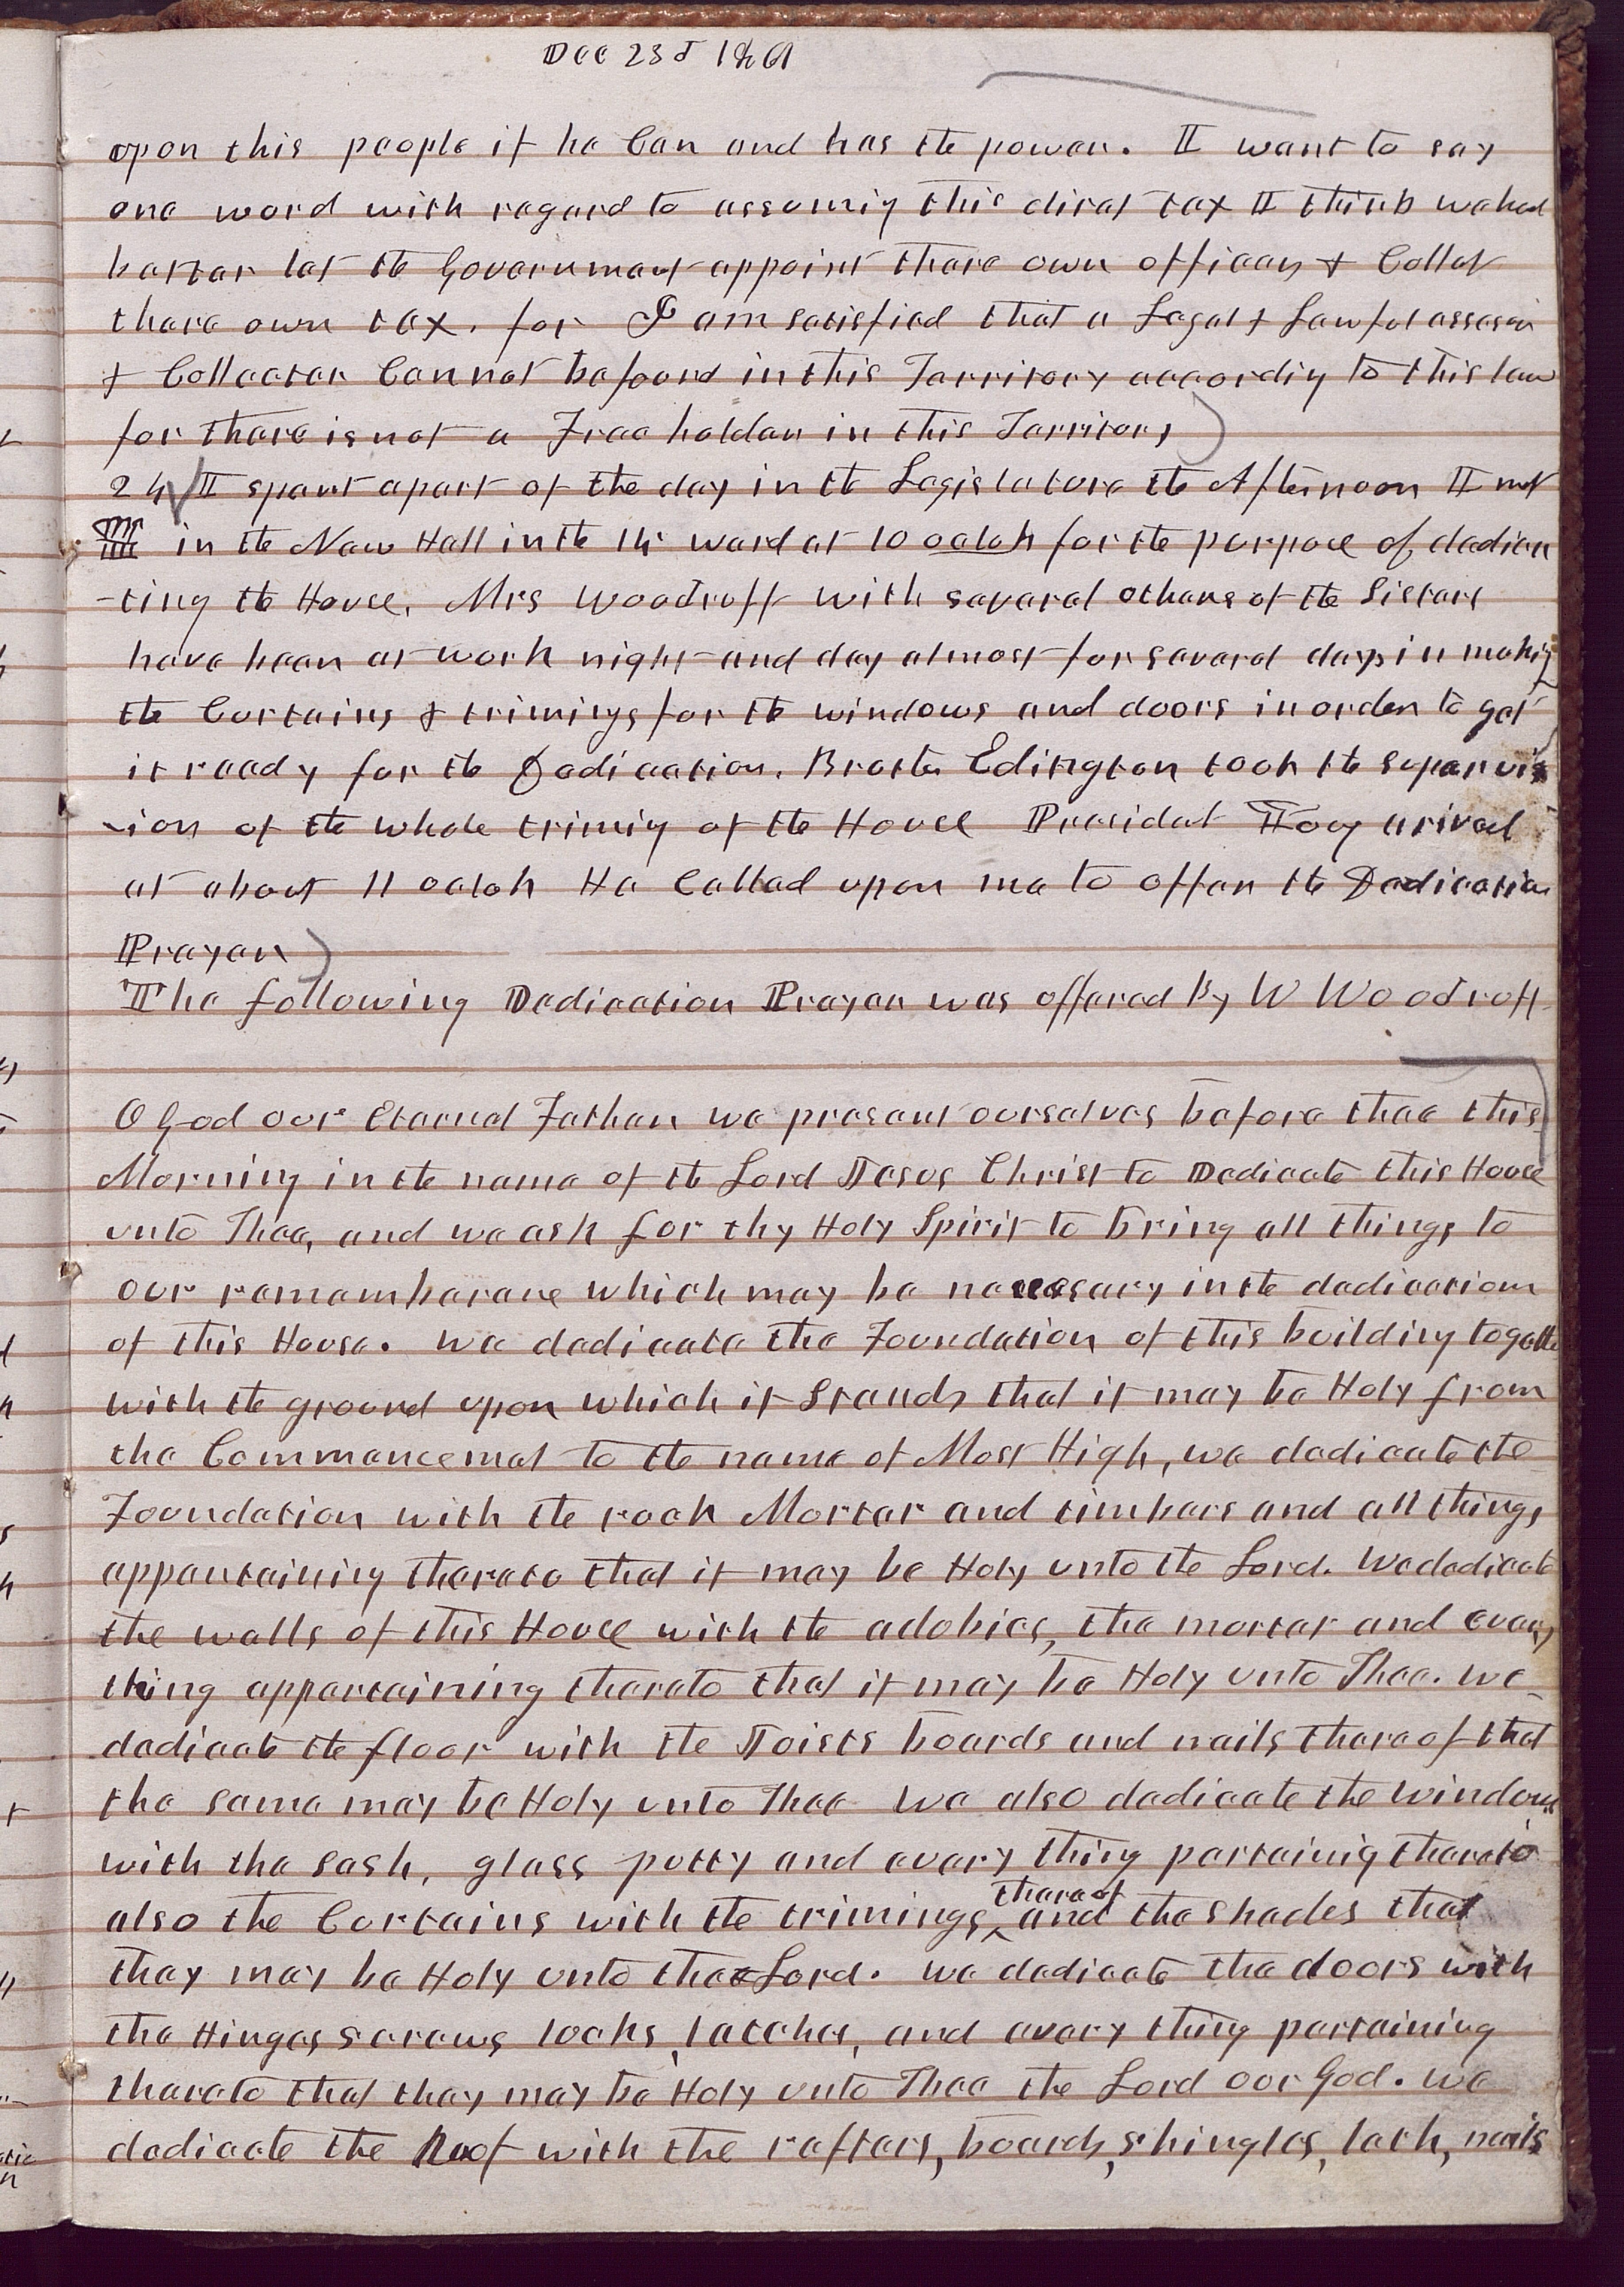 Dec 23d 1861
upon this people if he Can and has the power. I want to say
one word with regard to assumig this direct tax I think we had
better let the Government appoint there own officers & Collet
there own tax. for I am satisfied that a Legal & Lawful assessor
& Collector Cannot be found in this Territory accordig to this law
for there is not a Free holder in this Territory
24 I spent a part of the day in the Legislature the Afternoon I met
in the New Hall in the 14 ward at 10 oclok for the purpose of dedica
-ting the House. Mrs Woodruff with several others of the Sisters
have been at work night and day almost for several days in makig
the Curtains & trimings for the windows and doors in order to get
it ready for the Dedication. Brother Edington took the supervis
-ion of the whole trimig of the House President Young arived
at about 11 oclok He Called upon me to offer the Dedication
Prayer
The following Dedication Prayer was offered By W Woodruff
O God our Eternal Father we present ourselves before thee this
Morning in the name of the Lord Jesus Christ to Dedicate this House
unto Thee, and we ask for thy Holy Spirit to bring all things to
our rememberance which may be necessary in the dedication
of this House. we dedicate the Foundation of this buildig togetthe
with the ground upon which it stands that it may be Holy from
the Commencemet to the name of Most High, we dedicate the
Foundation with the rock Mortar and timbers and all things
appertaining thereto that it may be Holy unto the Lord. We dedicate
the walls of this House with the adobies, the mortar and every
thing appertaining thereto that it may be Holy unto Thee. we
dedicate the floor with the Joists boards and nails thereof that
the same may be Holy unto Thee we also dedicate the windows
with the sash, glass putty and every thing pertainig thereto
also the Curtains with the trimings thereof and the shades that
they may be Holy unto the Lord. we dedicate the doors with
the Hinges screws locks, latches, and every thing pertaining
thereto that they may be Holy unto Thee the Lord our God. we
dedicate the Roof with the rafters, boards, shingles, lath, nails